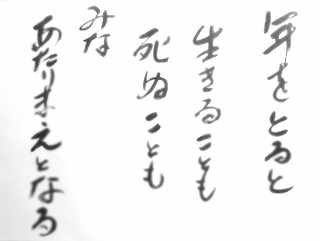 年をとると
生きることも
死ぬことも
みな
あたりまえとなる